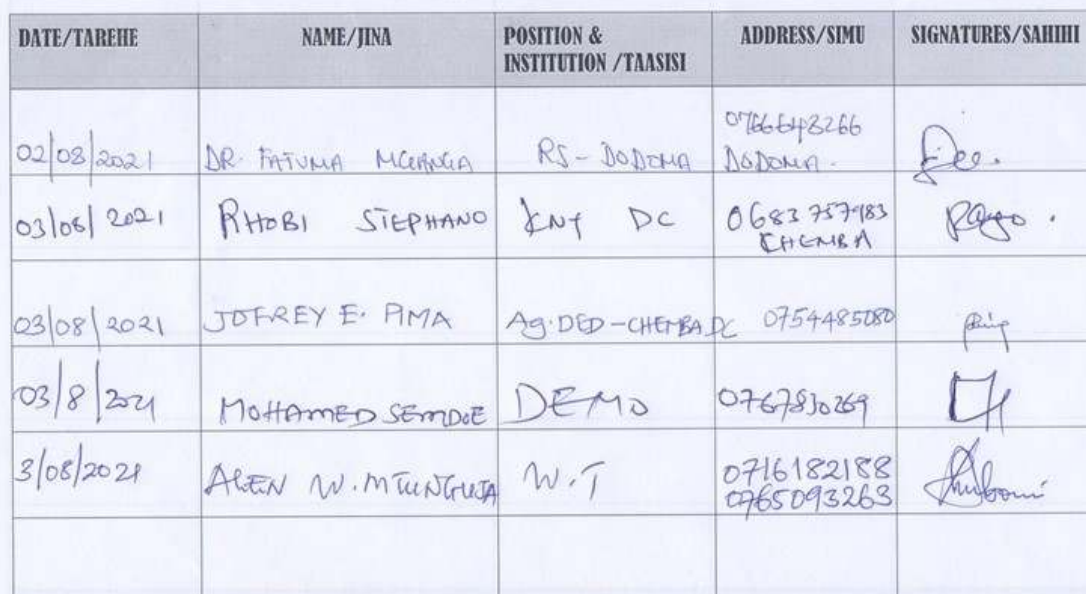 DATE/TAREHE NAME/JINA POSITION & INSTITUTION /TAASISI ADDRESS/SIMU SIGNATURES/SAHIHI
02/08/2021 DR. FATUMA MGANGA RS - DODOMA 0766643266 DODOMA.
03/08/2021 RHOBI STEPHANO DC 0683757983 CHEMBA
03/08/2021 JOFREY E. PIMA Ag. DED - CHEMBA DC 0754485080
03/8/2021 MOHAMED SEMDOE DEMO 0767830269
3/08/2021 W. W.T 0716182188 0765093263